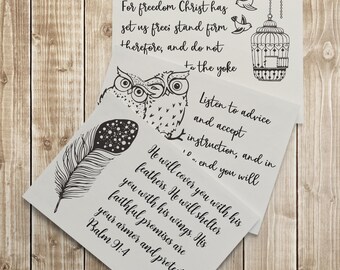 For freedom Christ has
set us free; stand firm
therefore, and do not
to the yoke
Listen to advice
and accept
instruction, and in
end you will
He will cover you with his
feathers. He will shelter
you with his wings. His
faithful promises are
your armor and protec
Psalm 91:4